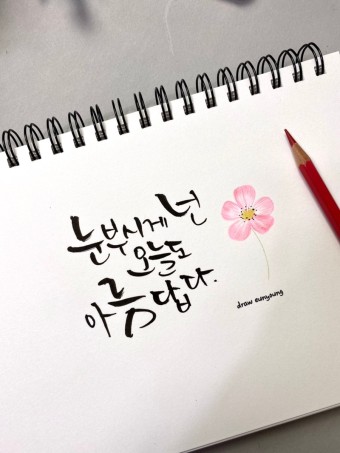 눈부시게 넌
오늘도
아름답다.
draw eunyoung